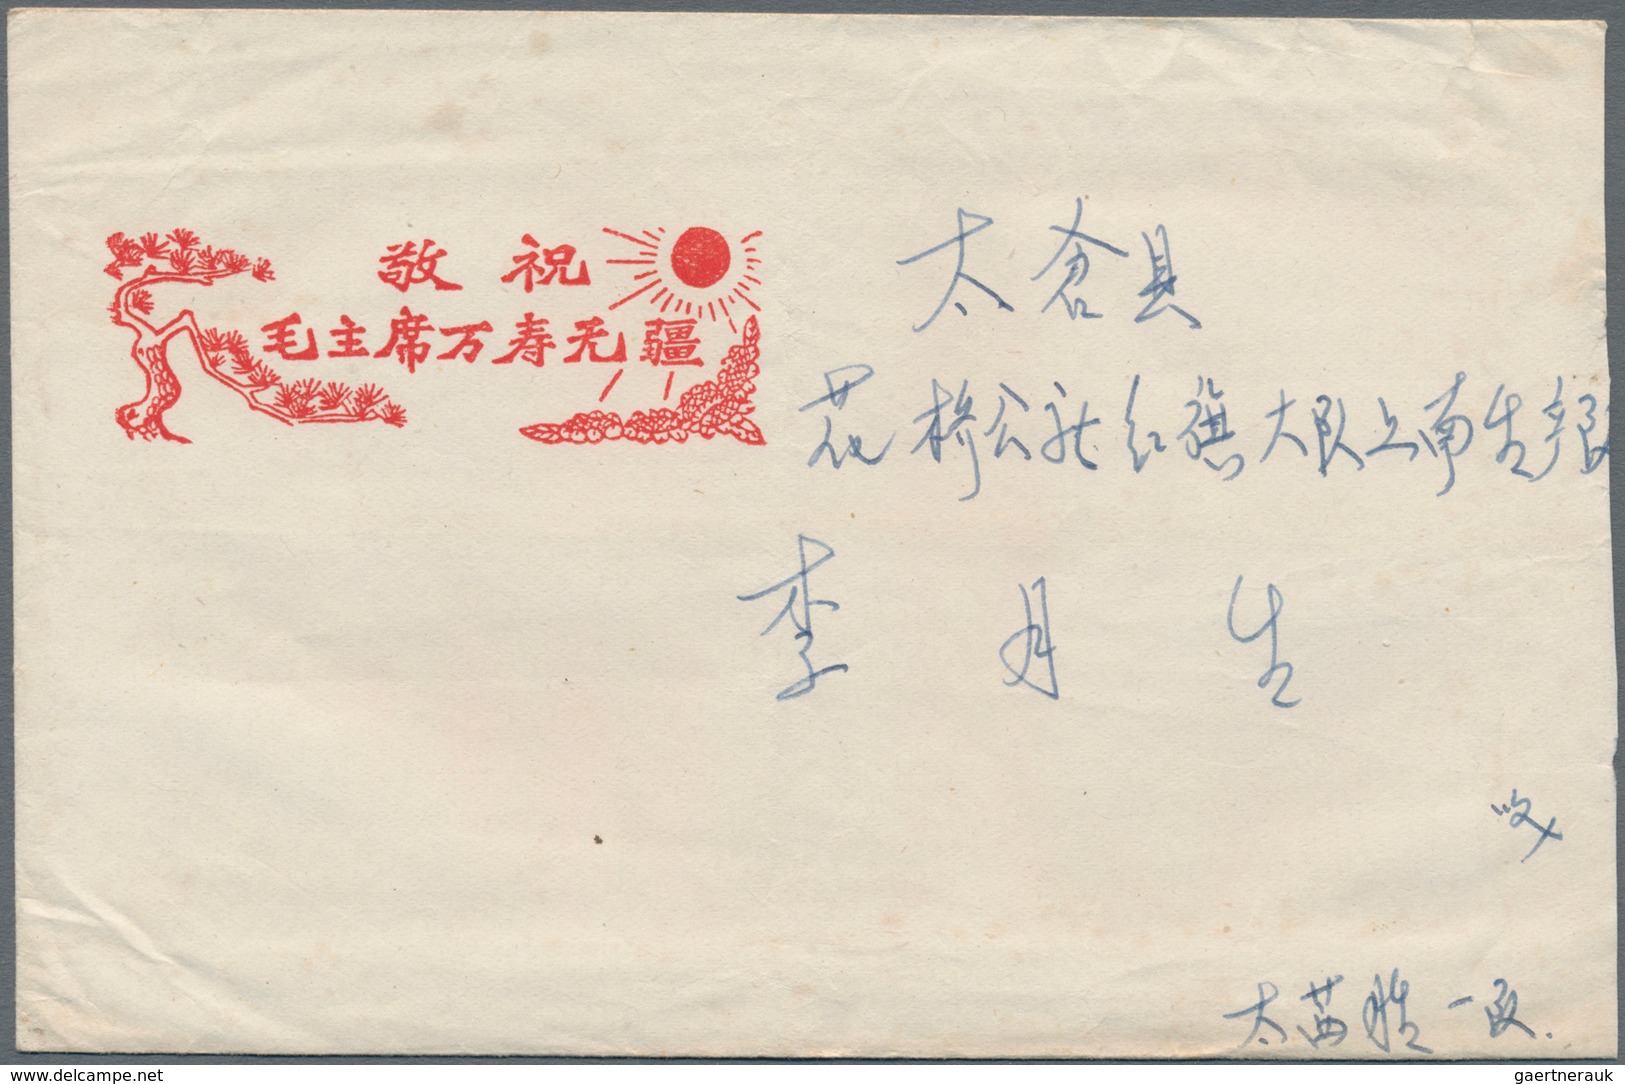 敬祝
毛主席万寿无疆
太仓县
花桥公社红旗大队上南生产队
李月生
收
太茜胜一
www.delcampe.net
gaertnerauk